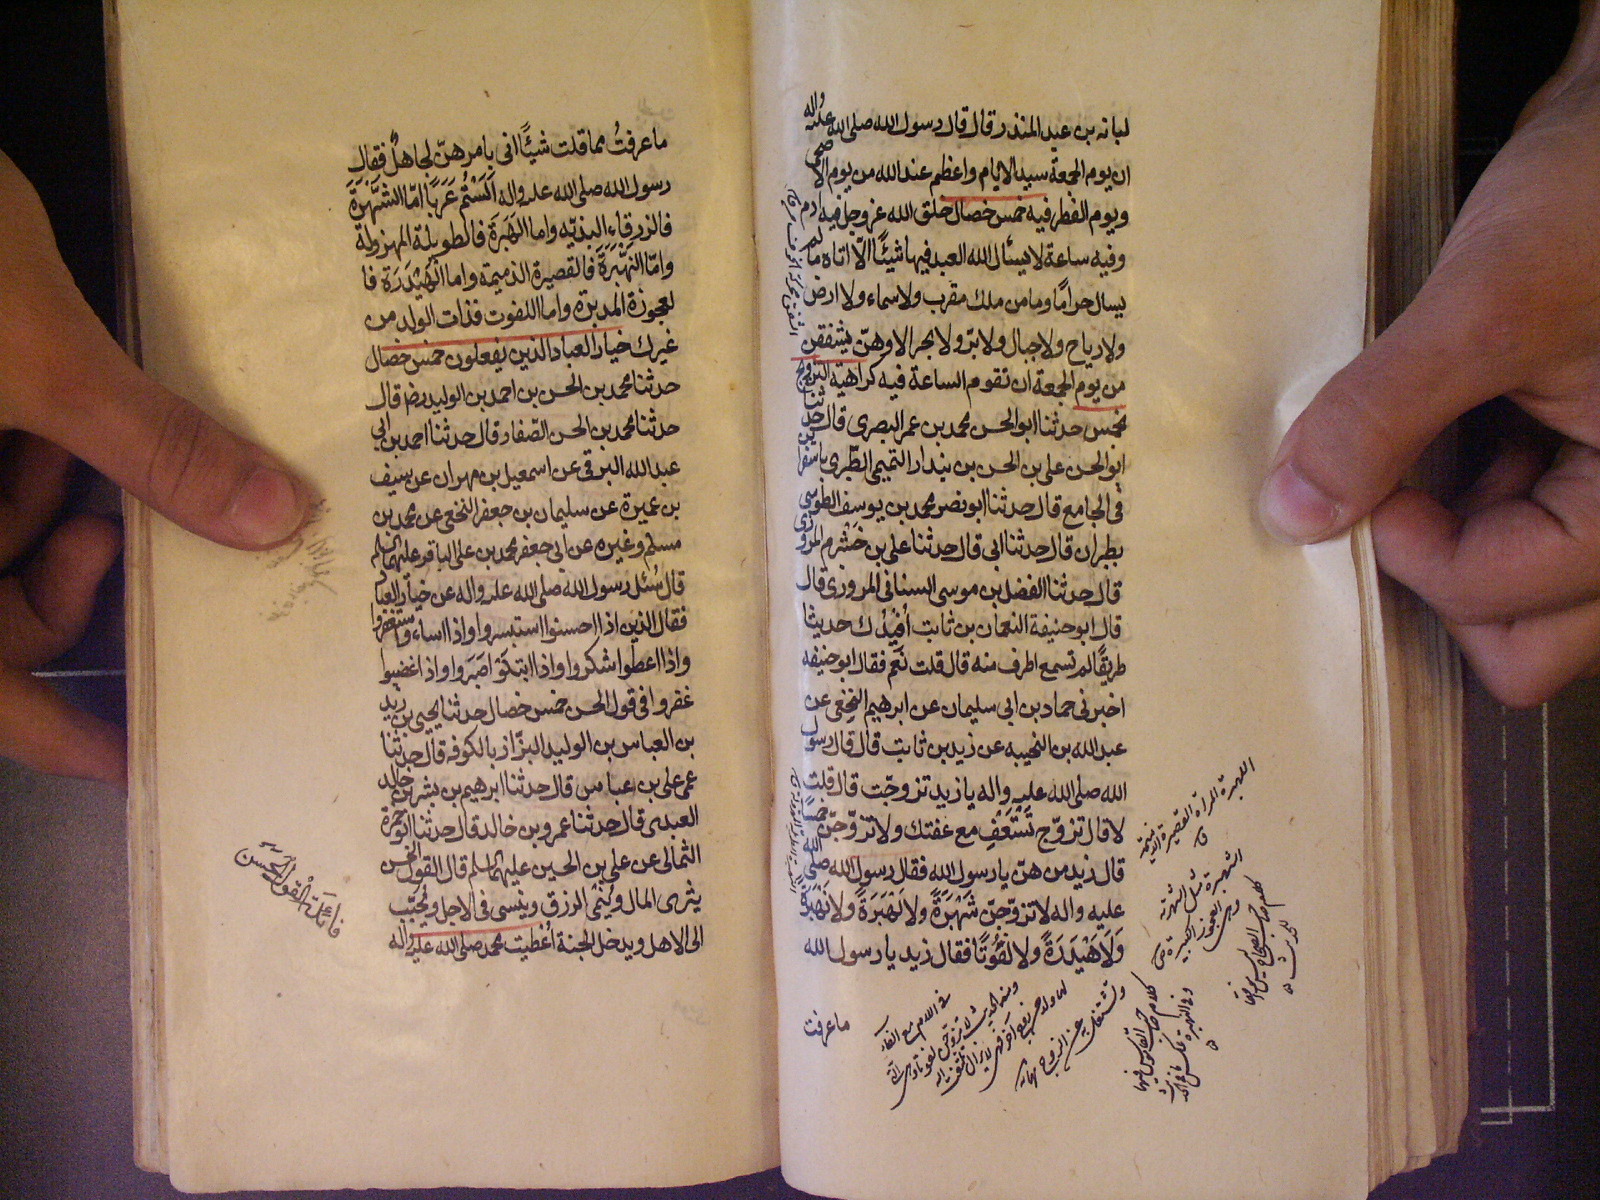 لبابه بن عبد المنذر قال قال رسول الله صلى الله عليه واله
ان يوم الجمعة سيد الايام واعظم عند الله من يوم الاضحى
ويوم الفطر فيه خمس خصال خلق الله عز وجل فيه ادم
وفيه ساعة لا يسأل الله العبد فيها شيئًا الّا اتاه ما لم
يسال حرامًا وما من ملك مقرب ولا سماء ولا ارض
ولا رياح ولا جبال ولا برّ ولا بحر الا وهنّ يشفقن
من يوم الجمعة ان تقوم الساعة فيه كراهية التزويج
بخمس حدثنا ابو الحسن محمد بن عمر البصرى قال حدثنا
ابو الحسن على بن الحسن بن بندار التميمى الطبرى باسفراين
فى الجامع قال حدثنا ابو نصر محمد بن يوسف الطوسى
بطبران قال حدثنا ابى قال حدثنا على بن خشرم المروزى
قال حدثنا الفضل بن موسى السنانى المروزى قال
قال ابو حنيفة النعمان بن ثابت أُفيدُك حديثا
طريفًا لم تسمع اطرف منه قال قلت نَعَم فقال ابو حنيفه
اخبرنى حماد بن ابى سليمان عن ابرهيم النخعى عن
عبد الله بن النحيبه عن زيد بن ثابت قال قال رسول
الله صلى الله عليه واله يا زيد تزوجت قال قلت
لا قال تزوّج تَسْتَعْفِ مع عفتك ولا تزوّجنّ خمسًا
قال زيد من هنّ يا رسول الله فقال رسول الله صلى الله
عليه واله لا تزوّجنّ شَهْبَرَةً ولا لَهْبَرَةً ولا نَهْبَرَةً
وَلَا هَيْدَرَةً ولا لَفُوتًا فقال زيد يا رسول الله
ما عرفت
ما عرفتُ مما قلت شيئًا انى بامرهنّ لجاهلٌ فقال
رسول الله صلى الله عليه واله اَلَسْتُم عَرَبًا امّا الشَّهْبَرَةُ
فالزرقاء البذيّه واما اللَهْبَرَة فالطويلة المهزولة
وامّا النَهْبَرَةُ فالقصيرة الذميمة واما الهَيْدَرَة فا
لعجوزة المدبرة واما اللفوت فذات الولد من
غيرك خيار العباد الذين يفعلون خمس خصال
حدثنا محمد بن الحسن بن احمد بن الوليد رضه قال
حدثنا محمد بن الحسن الصّفار قال حدثنا احمد بن ابى
عبد الله البرقى عن اسمعيل بن مهران عن سيف
بن عميرة عن سليمان بن جعفر النخعى عن محمد بن
مسلم وغيره عن ابى جعفر محمد بن على الباقر عليهما السلم
قال سُئل رسول الله صلى الله عليه واله عن خيار العباد
فقال الذين اذا احسنوا استبسروا واذا اساءوا ستغفروا
واذا اعطوا شكروا واذا ابتكوَا صَبَروا واذا اغضبوا
غفروا فى قول الحسن خمس خصال حدثنا يحيى بن زيد
بن العباس بن الوليد البزّاز بالكوفه قال حدثنا
عمى على بن عباس قال حدثنا ابرهيم بن بشر بن خالد
العبدى قال حدثنا عمرو بن خالد قال حدثنا ابو حمزة
الثمالى عن على بن الحسين عليهما السلم قال القول الحسن
يثرى المال ويُنمى الرزق وينسى فى الاجل ويُحبّب
الى الاهل ويدخل الجنة أعْطيت محمد صلى الله عليه واله
فائدة القول الحسن